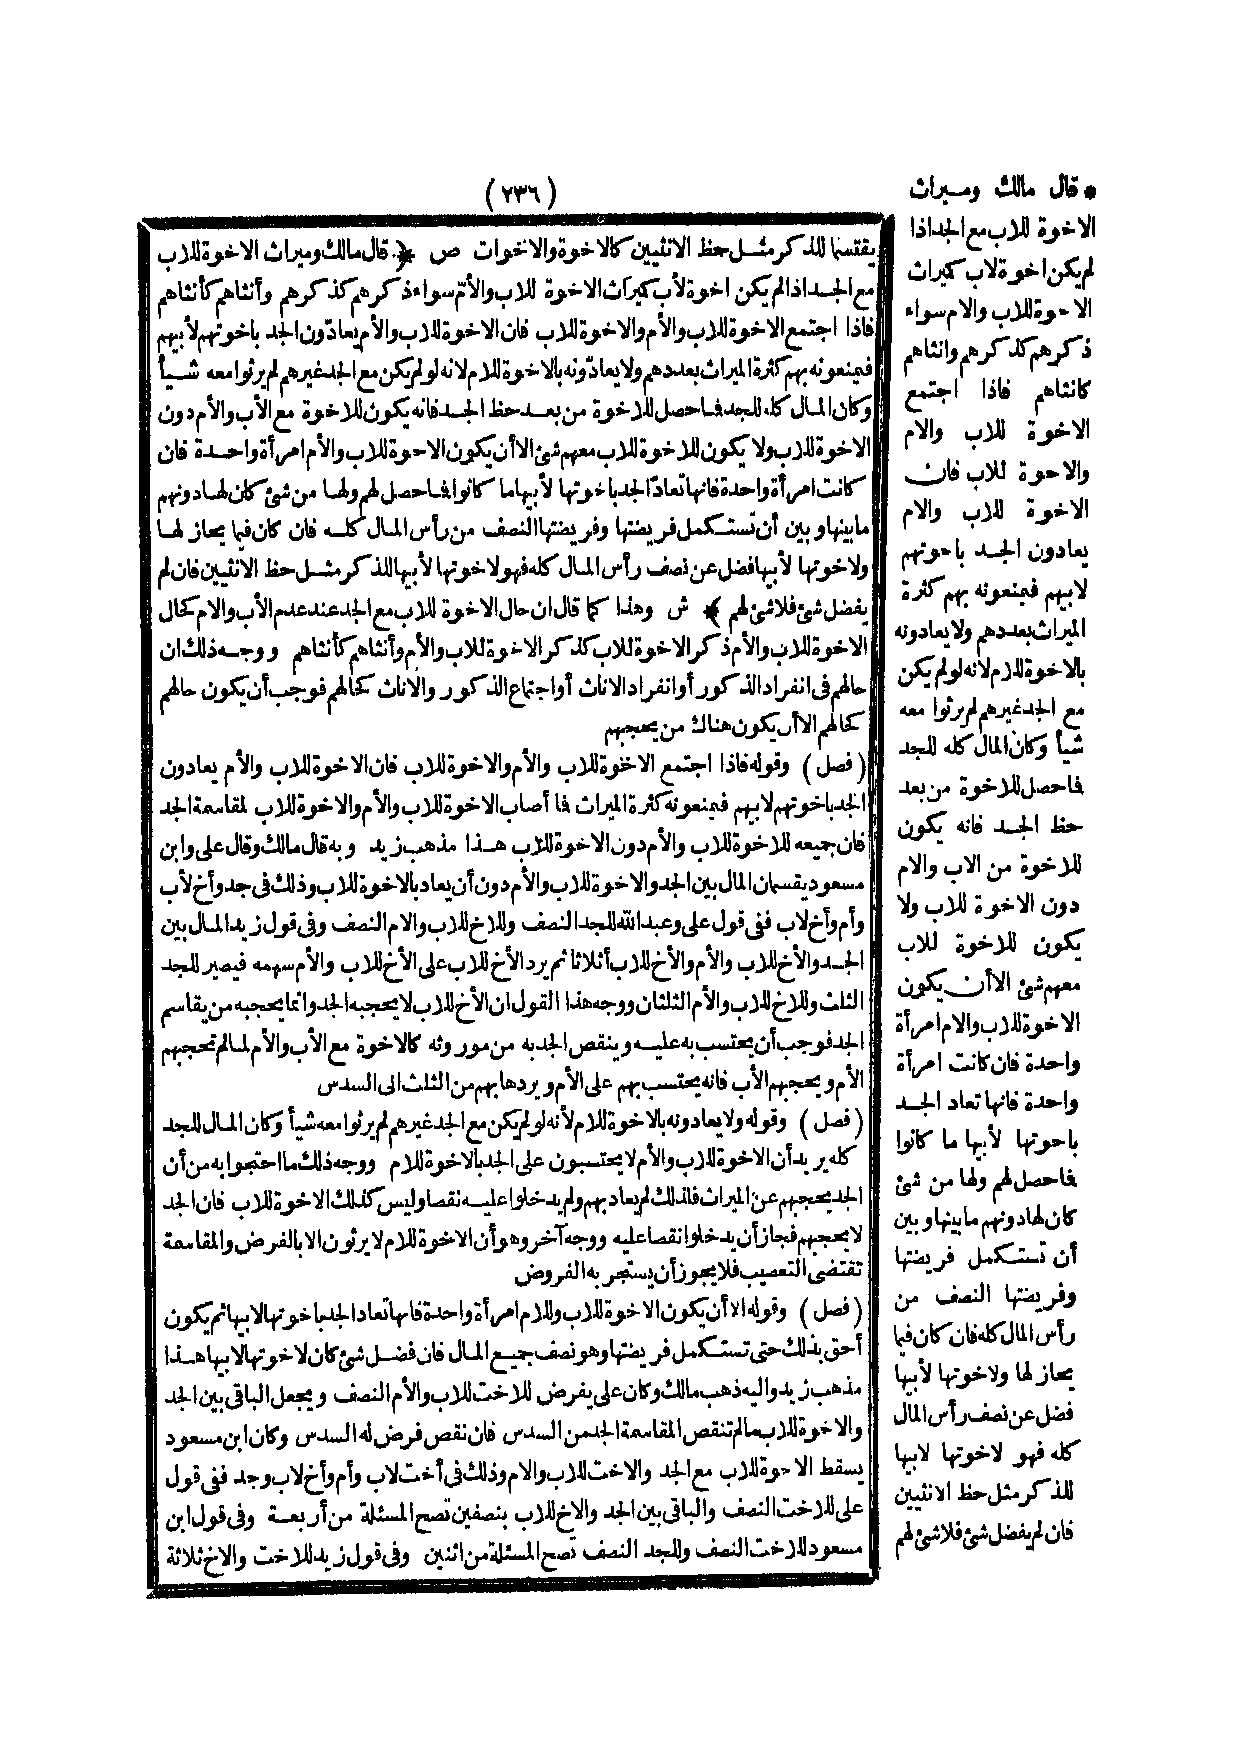 (٢٣٦)
يقتسما للذكر مثل حظ الانثيين كالاخوة والاخوات ص ﴿. قال مالك وميراث الاخوة للاب
مع الجد اذا لم يكن اخوة لأب كميراث الاخوة للاب والأم سواء ذكرهم كذكرهم وأنثاهم كأنثاهم
فاذا اجتمع الاخوة للاب والأم والاخوة للاب فان الاخوة للاب والأم يعادّون الجد باخوتهم لأبيهم
فيمنعونه بهم كثرة الميراث بعددهم ولا يعادّونه بالاخوة للام لانه لو لم يكن مع الجد غيرهم لم يرثوا معه شيأ
وكان المال كله للجد فما حصل للاخوة من بعد حظ الجد فانه يكون للاخوة مع الأب والأم دون
الاخوة للاب ولا يكون للاخوة للاب معهم شئ الا أن يكون الاخوة للاب والأم امرأة واحدة فان
كانت امرأة واحدة فانها تعادّ الجد باخوتها لأبيها ما كانوا فما حصل لهم ولها من شئ كان لها دونهم
ما بينها وبين أن تستكمل فريضتها وفريضتها النصف من رأس المال كله فان كان فيما يحاز لها
ولاخوتها لأبيها فضل عن نصف رأس المال كله فهو لاخوتها لأبيها للذكر مثل حظ الانثيين فان لم
يفضل شئ فلا شئ لهم ﴾ ش وهذا كما قال ان حال الاخوة للاب مع الجد عند عدم الأب والام كحال
الاخوة للاب والأم ذكر الاخوة للاب كذكر الاخوة للاب والأم وأنثاهم كأنثاهم ووجه ذلك ان
حالهم فى انفراد الذكور أو انفراد الاناث أو اجتماع الذكور والاناث كحالهم فوجب أن يكون حالهم
كحالهم الا أن يكون هناك من يحجبهم
(فصل) وقوله فاذا اجتمع الاخوة للاب والأم والاخوة للاب فان الاخوة للاب والأم يعادون
الجد باخوتهم لابيهم فيمنعونه كثرة الميراث فما أصاب الاخوة للاب والأم والاخوة للاب لمقاسمة الجد
فان جميعه للاخوة للاب والأم دون الاخوة للاب هذا مذهب زيد وبه قال مالك وقال على وابن
مسعود يقسمان المال بين الجد والاخوة للاب والأم دون أن يعاد بالاخوة للاب وذلك فى جد وأخ لأب
وأم وأخ لاب ففى قول على وعبد الله للجد النصف وللاخ للاب والام النصف وفى قول زيد المال بين
الجد والأخ للاب والأم والأخ للاب أثلاثا ثم يرد الأخ للاب على الأخ للاب والأم سهمه فيصير للجد
الثلث وللاخ للاب والأم الثلثان ووجه هذا القول ان الأخ للاب لا يحجبه الجد وانما يحجبه من يقاسم
الجد فوجب أن يحتسب به عليه وينقص الجد به من موروثه كالاخوة مع الأب والأم لما لم تحجبهم
الأم ويحجبهم الأب فانه يحتسب بهم على الأم ويردها بهم من الثلث الى السدس
(فصل) وقوله ولا يعادونه بالاخوة للام لأنه لو لم يكن مع الجد غيرهم لم يرثوا معه شيأ وكان المال للجد
كله يريد أن الاخوة للاب والأم لا يحتسبون على الجد بالاخوة للام ووجه ذلك ما احتجوا به من أن
الجد يحجبهم عن الميراث فلذلك لم يعاد بهم ولم يدخلوا عليه نقصا وليس كذلك الاخوة للاب فان الجد
لا يحجبهم فجاز أن يدخلوا نقصا عليه ووجه آخر وهو أن الاخوة للام لا يرثون الا بالفرض والمقاسمة
تقتضى التعصيب فلا يجوز أن يستجر به الفروض
(فصل) وقوله الا أن يكون الاخوة للاب وللام امرأة واحدة فانها تعاد الجد باخوتها لابيها ثم يكون
أحق بذلك حتى تستكمل فريضتها وهو نصف جميع المال فان فضل شئ كان لاخوتها لابيها هذا
مذهب زيد واليه ذهب مالك وكان على يفرض للاخت للاب والأم النصف ويجعل الباقى بين الجد
والاخوة للاب ما لم تنقص المقاسمة الجد من السدس فان نقص فرض له السدس وكان ابن مسعود
يسقط الاخوة للاب مع الجد والاخت للاب والام وذلك فى أخت لاب وأم وأخ لاب وجد ففى قول
على للاخت النصف والباقى بين الجد والاخ للاب بنصفين تصح المسئلة من أربعة وفى قول ابن
مسعود للاخت النصف وللجد النصف تصح المسئلة من اثنين وفى قول زيد للاخت والاخ ثلاثة
* قال مالك وميراث
الاخوة للاب مع الجد اذا
لم يكن اخوة لاب كميراث
الاخوة للاب والام سواء
ذكرهم كذكرهم وانثاهم
كانثاهم فاذا اجتمع
الاخوة للاب والام
والاخوة للاب فان
الاخوة للاب والام
يعادون الجد باخوتهم
لابيهم فيمنعونه بهم كثرة
الميراث بعددهم ولا يعادونه
بالاخوة للام لانه لو لم يكن
مع الجد غيرهم لم يرثوا معه
شيأ وكان المال كله للجد
فما حصل للاخوة من بعد
حظ الجد فانه يكون
للاخوة من الاب والام
دون الاخوة للاب ولا
يكون للاخوة للاب
معهم شئ الا أن يكون
الاخوة للاب والام امرأة
واحدة فان كانت امرأة
واحدة فانها تعاد الجد
باخوتها لأبيها ما كانوا
فما حصل لهم ولها من شئ
كان لها دونهم ما بينها وبين
أن تستكمل فريضتها
وفريضتها النصف من
رأس المال كله فان كان فيما
يحاز لها ولاخوتها لأبيها
فضل عن نصف رأس المال
كله فهو لاخوتها لابيها
للذكر مثل حظ الانثيين
فان لم يفضل شئ فلا شئ لهم